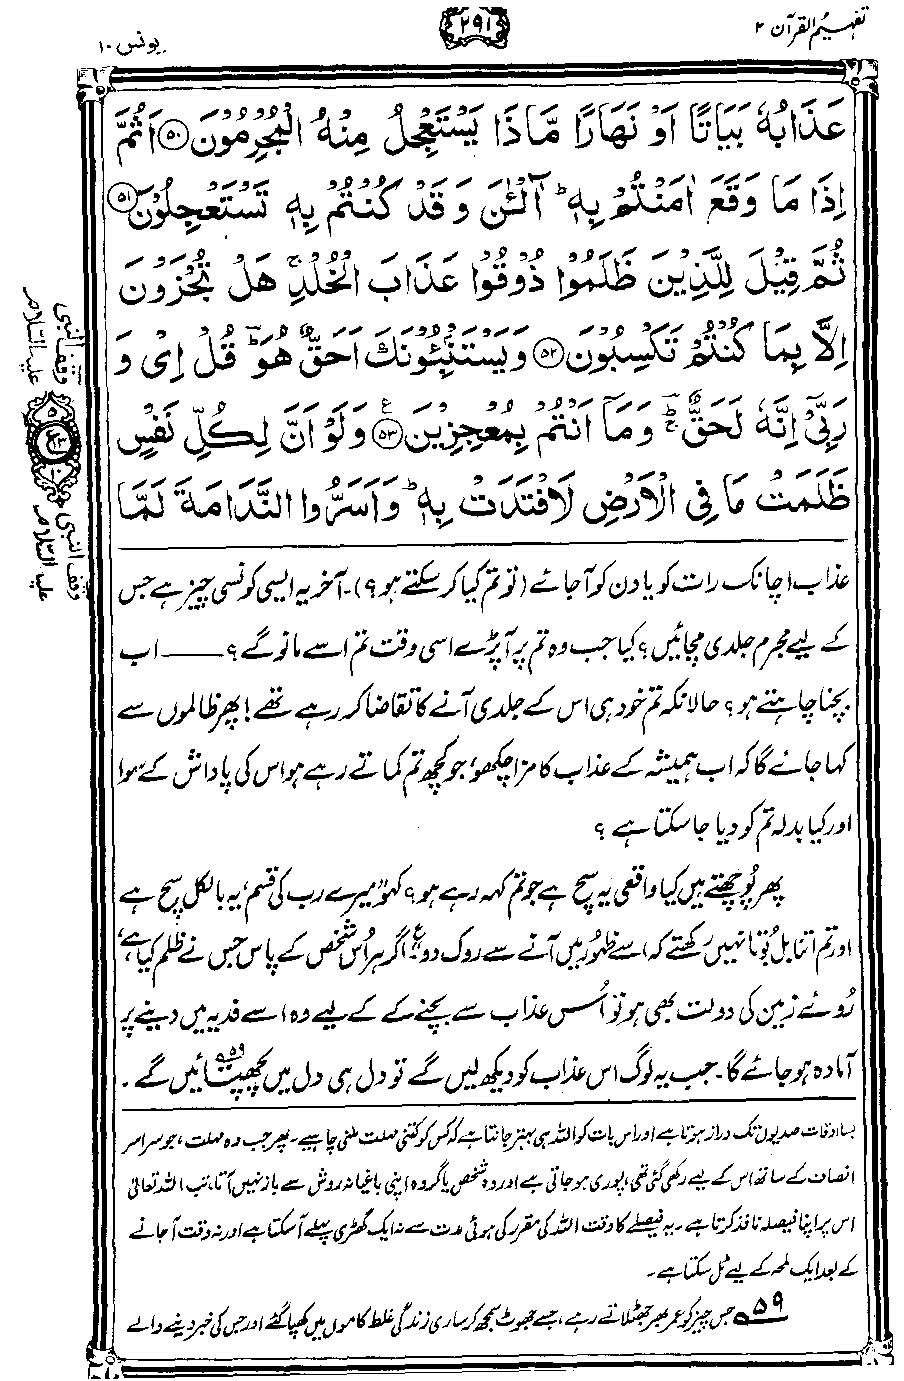 تفہیم القرآن ۲
۲۹۱
یونس ۱۰
عَذَابُهٗ بَيَاتًا اَوْ نَهَارًا مَّاذَا يَسْتَعْجِلُ مِنْهُ الْمُجْرِمُوْنَ ﴿۵۰﴾ اَثُمَّ
اِذَا مَا وَقَعَ اٰمَنْتُمْ بِهٖ ؕ آٰلْـٰٔنَ وَ قَدْ كُنْتُمْ بِهٖ تَسْتَعْجِلُوْنَ ﴿۵۱﴾
ثُمَّ قِيْلَ لِلَّذِيْنَ ظَلَمُوْا ذُوْقُوْا عَذَابَ الْخُلْدِ ۚ هَلْ تُجْزَوْنَ
اِلَّا بِمَا كُنْتُمْ تَكْسِبُوْنَ ﴿۵۲﴾ وَ يَسْتَنْۢبِـُٔوْنَكَ اَحَقٌّ هُوَ ؔؕ قُلْ اِيْ وَ
رَبِّيْۤ اِنَّهٗ لَحَقٌّ ؔؕ وَ مَاۤ اَنْتُمْ بِمُعْجِزِيْنَ ﴿۵۳﴾ ع وَ لَوْ اَنَّ لِكُلِّ نَفْسٍ
ظَلَمَتْ مَا فِي الْاَرْضِ لَافْتَدَتْ بِهٖ ؕ وَ اَسَرُّوا النَّدَامَةَ لَمَّا
وقف النبی علیہ السّلام
۵
۱۰
وقف النبی علیہ السّلام
عذاب اچانک رات کو یا دن کو آجائے (تو تم کیا کر سکتے ہو؟)۔ آخر یہ ایسی کونسی چیز ہے جس
کے لیے مجرم جلدی مچائیں؟ کیا جب وہ تم پر آپڑے اسی وقت تم اسے مانو گے؟ ——— اب
بچنا چاہتے ہو؟ حالانکہ تم خود ہی اس کے جلدی آنے کا تقاضا کر رہے تھے! پھر ظالموں سے
کہا جائے گا کہ اب ہمیشہ کے عذاب کا مزا چکھو، جو کچھ تم کماتے رہے ہو اس کی پاداش کے سوا
اور کیا بدلہ تم کو دیا جا سکتا ہے؟
پھر پُوچھتے ہیں کیا واقعی یہ سچ ہے جو تم کہہ رہے ہو؟ کہو "میرے رب کی قسم، یہ بالکل سچ ہے
اور تم اتنا بل بُوتا نہیں رکھتے کہ اسے ظہُور میں آنے سے روک دو" ع اگر ہر اُس شخص کے پاس جس نے ظلم کیا ہے،
رُوئے زمین کی دولت بھی ہو تو اُس عذاب سے بچنے کے لیے وہ اسے فدیہ میں دینے پر
آمادہ ہو جائے گا۔ جب یہ لوگ اس عذاب کو دیکھ لیں گے تو دل ہی دل میں پچھتائیں گے ۵۹۔
بسا اوقات صدیوں تک دراز ہوتا ہے اور اس بات کو اللہ ہی بہتر جانتا ہے کہ کس کو کتنی مہلت ملنی چاہیے۔ پھر جب وہ مہلت، جو سراسر
انصاف کے ساتھ اس کے لیے رکھی گئی تھی، پوری ہو جاتی ہے اور وہ شخص یا گروہ اپنی باغیانہ روش سے باز نہیں آتا، تب اللہ تعالیٰ
اس پر اپنا فیصلہ نافذ کرتا ہے۔ یہ فیصلے کا وقت اللہ کی مقرر کی ہوئی مدت سے نہ ایک گھڑی پہلے آ سکتا ہے اور نہ وقت آ جانے
کے بعد ایک لمحہ کے لیے ٹل سکتا ہے۔
۵۹ جس چیز کو عمر بھر جھٹلاتے رہے، جسے جھوٹ سمجھ کر ساری زندگی غلط کاموں میں کھپا گئے اور جس کی خبر دینے والے